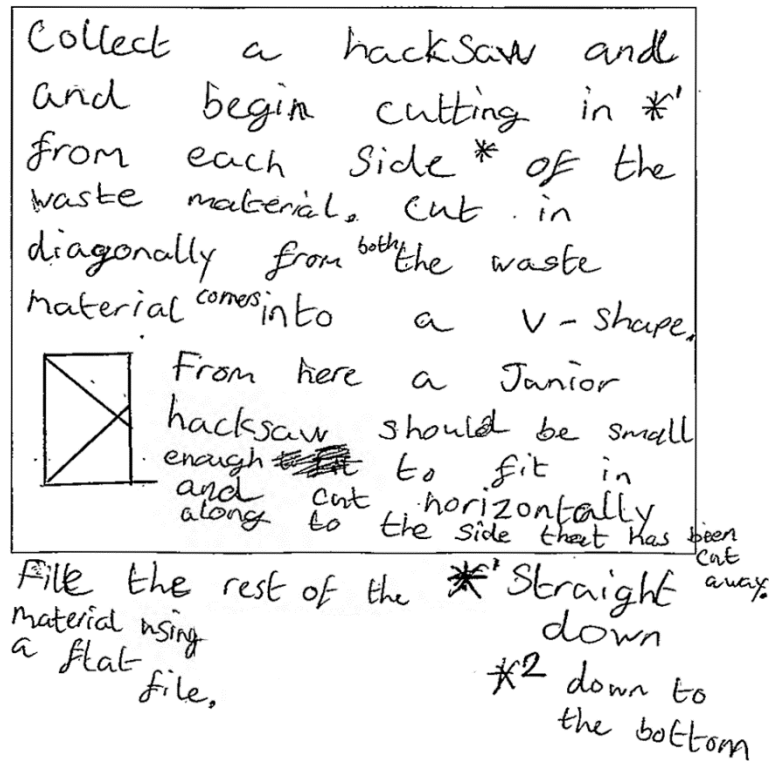 Collect a hacksaw and
and begin cutting in *1
from each side * of the
waste material. Cut in
diagonally from both the waste
material corners into a V-shape.
From here a Junior
hacksaw should be small
enough to fit in
and cut horizontally
along to the side that has been
cut
away.
File the rest of the
material using
a flat
file.
*1 Straight
down
*2 down to
the bottom